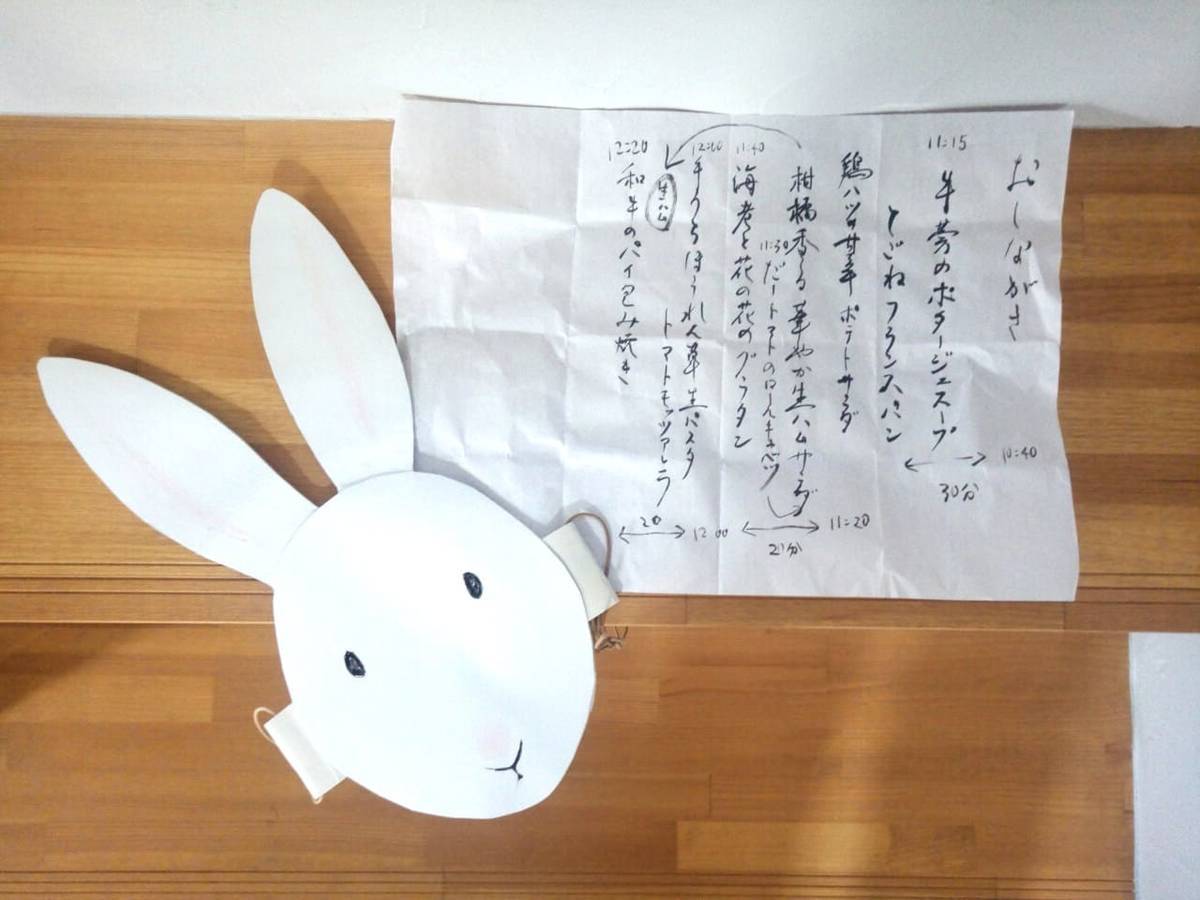 おしながき
11:15
牛蒡のポタージュスープ
とごねフランスパン
10:40
30分
鶏ハツの甘辛ポテトサラダ
柑橘香る華やか生ハムサラダ
11:30
トマトのロールキャベツ
11:20
11:40
海老と花の花のグラタン
21分
ほうれん草生パスタ
生ハム
トマトモッツァレラ
12:00
20
12:20
和牛のパイ包み焼き